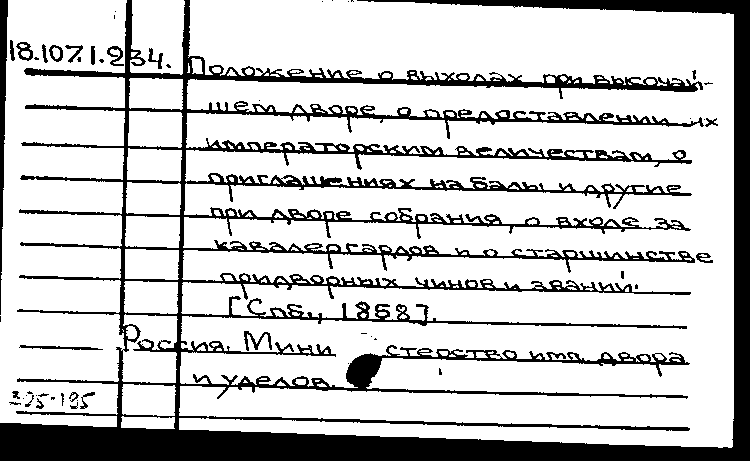 18.107.1.234. Положение о выходах при высочай-
шем дворе, о предоставлении их
императорским величествам, о
приглашениях на балы и другие
при дворе собрания, о входе за
кавалергардов и о старшинстве
придворных чинов и званий.
[Спб., 1858].
Россия. Министерство имп. двора
и уделов.
395-195